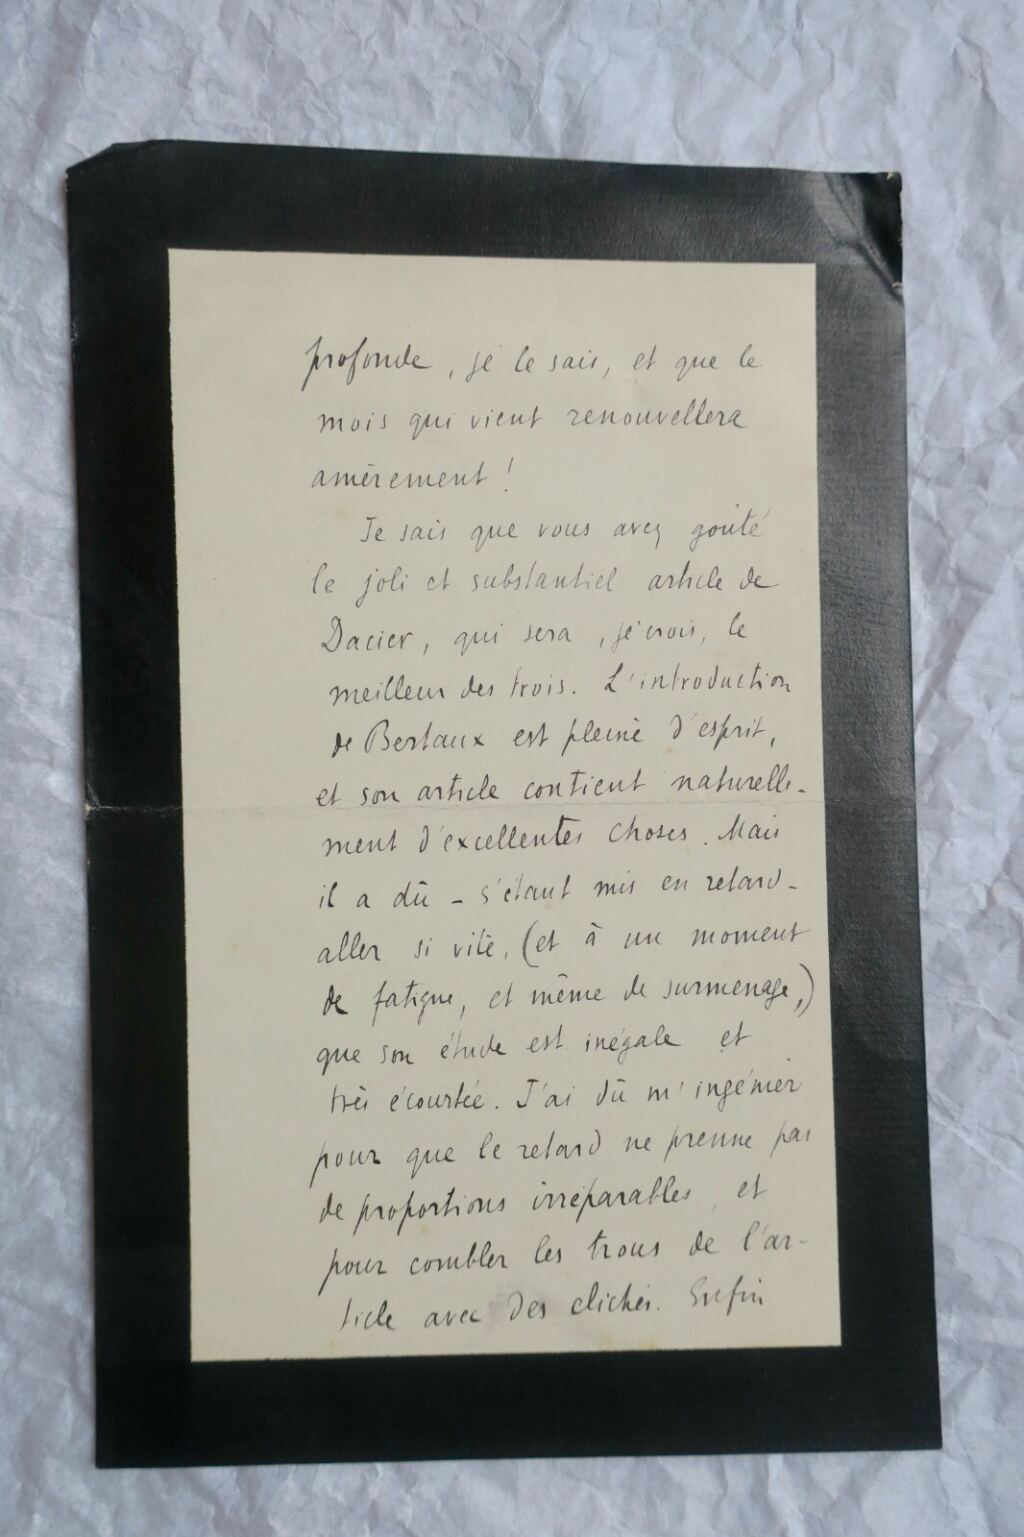 profonde, je le sais, et que le
mois qui vient renouvellera
amèrement !
Je sais que vous avez goûté
le joli et substantiel article de
Dacier, qui sera, je crois, le
meilleur des trois. L'introduction
de Bertaux est pleine d'esprit,
et son article contient naturelle-
ment d'excellentes choses. Mais
il a dû - s'étant mis en retard -
aller si vite, (et à un moment
de fatigue, et même de surmenage,)
que son étude est inégale et
très écourtée. J'ai dû m'ingénier
pour que le retard ne prenne pas
de proportions irréparables, et
pour combler les trous de l'ar-
ticle avec des clichés. Enfin